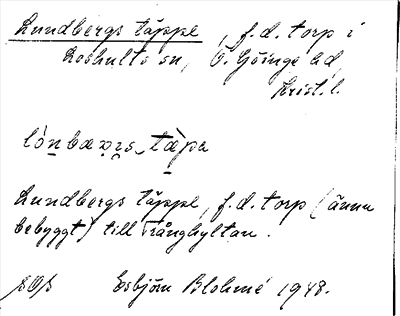 Lundbergs täppe, f.d. torp i
Loshults sn, Ö. Göinge hd,
Krist. l.
lón̲bæɲ̲ɪs_tæ̀pa
Lundbergs täppe, f.d. torp (ännu
bebyggt) till Trånghyltan.
Esbjörn Blohmé 1948.